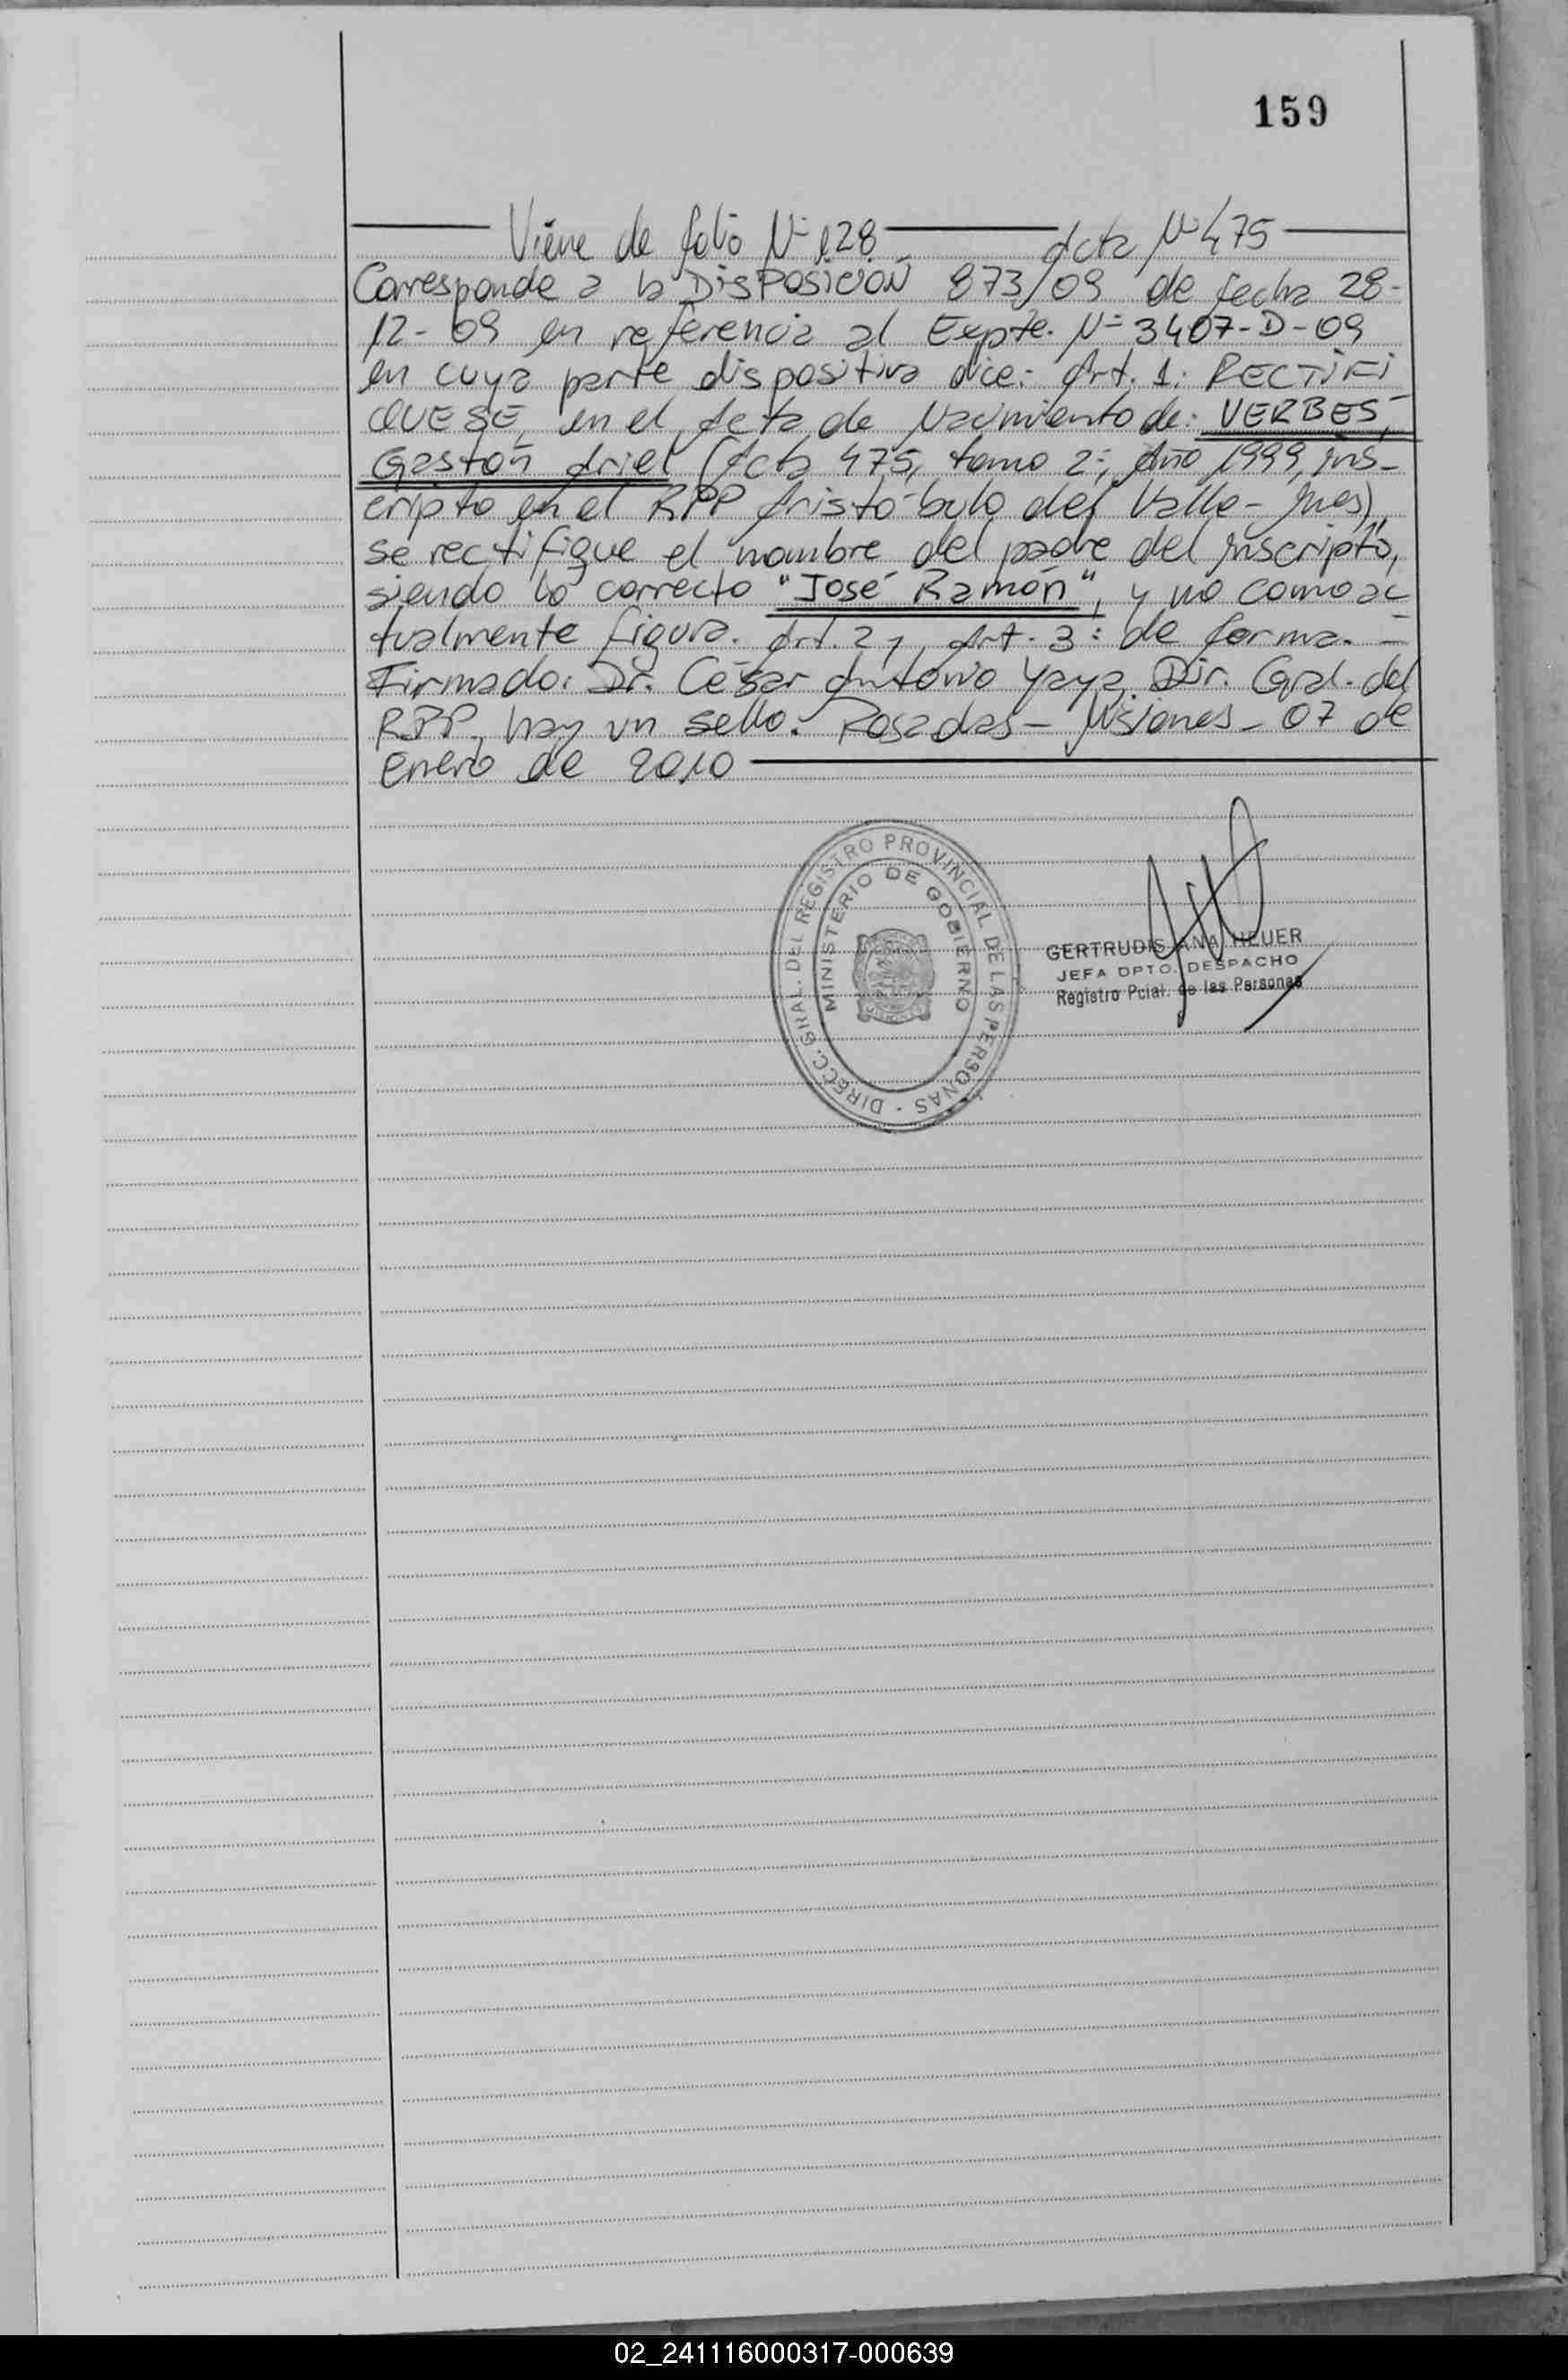 159
Viene de folio Nº 128 Acta Nº 475
Corresponde a la DISPOSICIÓN 873/09 de fecha 28-
12-09 en referencia al Expte. Nº 3407-D-09
en cuya parte dispositiva dice: Art. 1: RECTIFI
QUESE, en el Acta de Nacimiento de: VERBES,
Gastón Ariel (Acta 475, tomo 2º, Año 1999, ins-
cripto en el RPP Aristóbulo del Valle - Mnes),
se rectifique el nombre del padre del inscripto,
siendo lo correcto "José Ramón", y no como ac
tualmente figura. Art. 2 y Art. 3: de forma. -
Firmado: Dr. César Antonio Yaya. Dir. Gral. del
RPP, hay un sello. Posadas - Misiones - 07 de
Enero de 2010
DIRECC. GRAL. DEL REGISTRO PROVINCIAL DE LAS PERSONAS -
MINISTERIO DE GOBIERNO
GERTRUDIS ANA HEUER
JEFA DPTO. DESPACHO
Registro Pcial. de las Personas
02_241116000317-000639